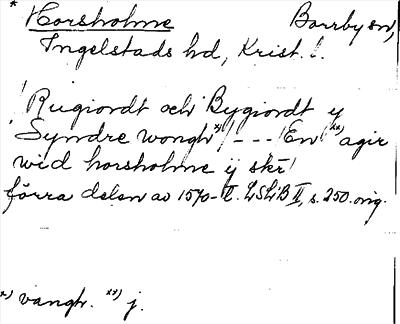 * Horsholme Borrby sn,
Ingelstads hd, Krist. l.
! Rugiordt och Bygiordt y
Syndre wongh *)! - - - ! En! **) agir
wid horsholme ij skr!
förra delen av 1570-t. LSLB II, s. 250. orig.
*) vangh. **) j.